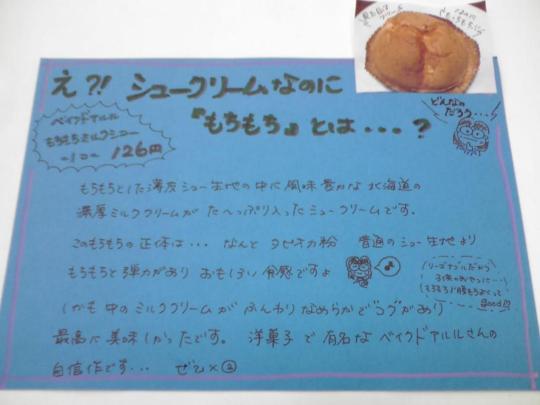 え?! シュークリームなのに
『もちもち』とは・・・?
どんなの
だろう・・・
ベイクドアルル
もちもちミルクシュー
一コ 126円
もちもちとした薄皮シュー生地の中に風味豊かな北海道の
濃厚ミルククリームが た〜っぷり入ったシュークリームです。
このもちもちの正体は・・・ なんと タピオカ粉 普通のシュー生地より
もちもちと弾力があり おもしろい食感ですよ
リーズナブルだから
子供のおやつに・・・
good
しかも中のミルククリームが ふんわりなめらかで"コク"があり
最高に美味しかったです。 洋菓子で有名なベイクドアルルさんの
自信作です・・・ ぜひ×②